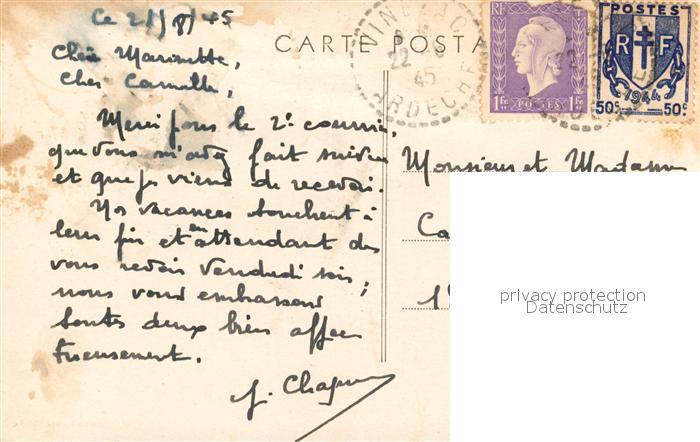 Ce 21/8/45
CARTE POSTA
Chère Marinette,
Cher Camille,
Merci pour le 2e courrier,
que vous m'avez fait suivre
et que je viens de recevoir.
Nos vacances touchent à
leur fin et en attendant de
vous revoir Vendredi soir,
nous vous embrassons
toutes deux bien affec
tueusement.
J. Chapu
Monsieur et Madame
Ca
1
22
45
ARDECHE
RF
1Fr POSTES 1Fr
POSTES
R F
1944
50c 50c
privacy protection
Datenschutz